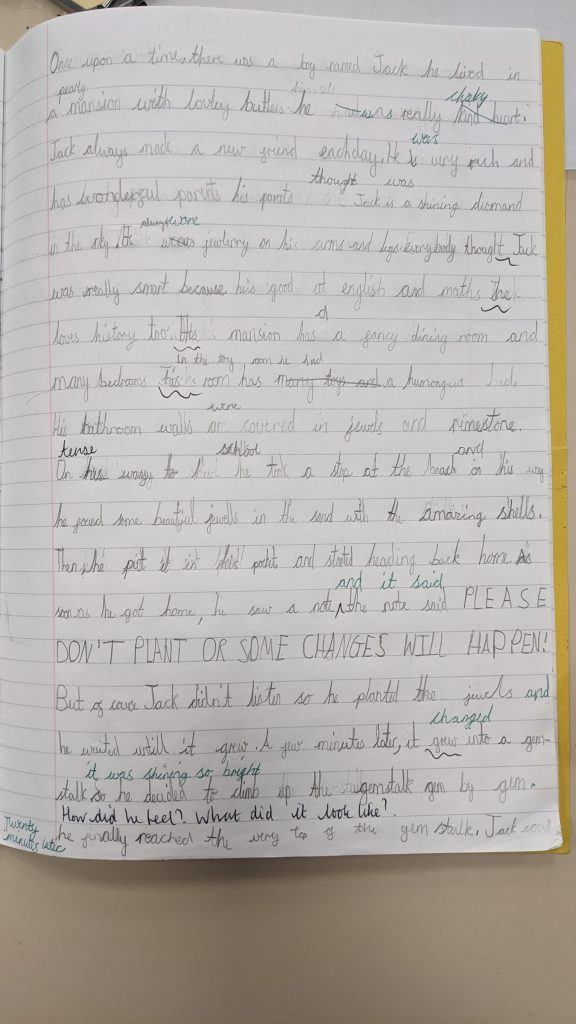 Once upon a time, there was a boy named Jack he lived in
pearly
a mansion with lovley butlers he was really kind heart.
cheky
was
Jack always made a new friend eachday. He is very rich and
thought was
has wonderful parints his parints Jack is a shining diomand
always wore
in the sky. It jewlerry on his arms and legs everybody thought Jack
was really smart because he's good at english and maths the
a
loves history too. His mansion has a fancy dining room and
In the toy room he had
many bedrooms This room has many toys and a humongus bed.
were
His bathroom walls ar covered in jewels and rimestone.
tense school and
On his wayy to he took a stop at the beach on his way
he found some beautiful jewells in the sand with the amazing shells.
Then, he put it in pocket and started heading back home. As
and it said
soon as he got home, he saw a note, the note said PLEASE
DON'T PLANT OR SOME CHANGES WILL HAPPEN!
But of couce Jack didn't listen so he planted the jewels and
changed
he waited untill it grew. A few minutes later, it grew into a gem-
it was shining so bright
stalk so he decided to climb up the gemstalk gem by gem.
How did he feel? What did it look like?
Twenty
minutes later
he finally reached the very top of the gem stalk. Jack